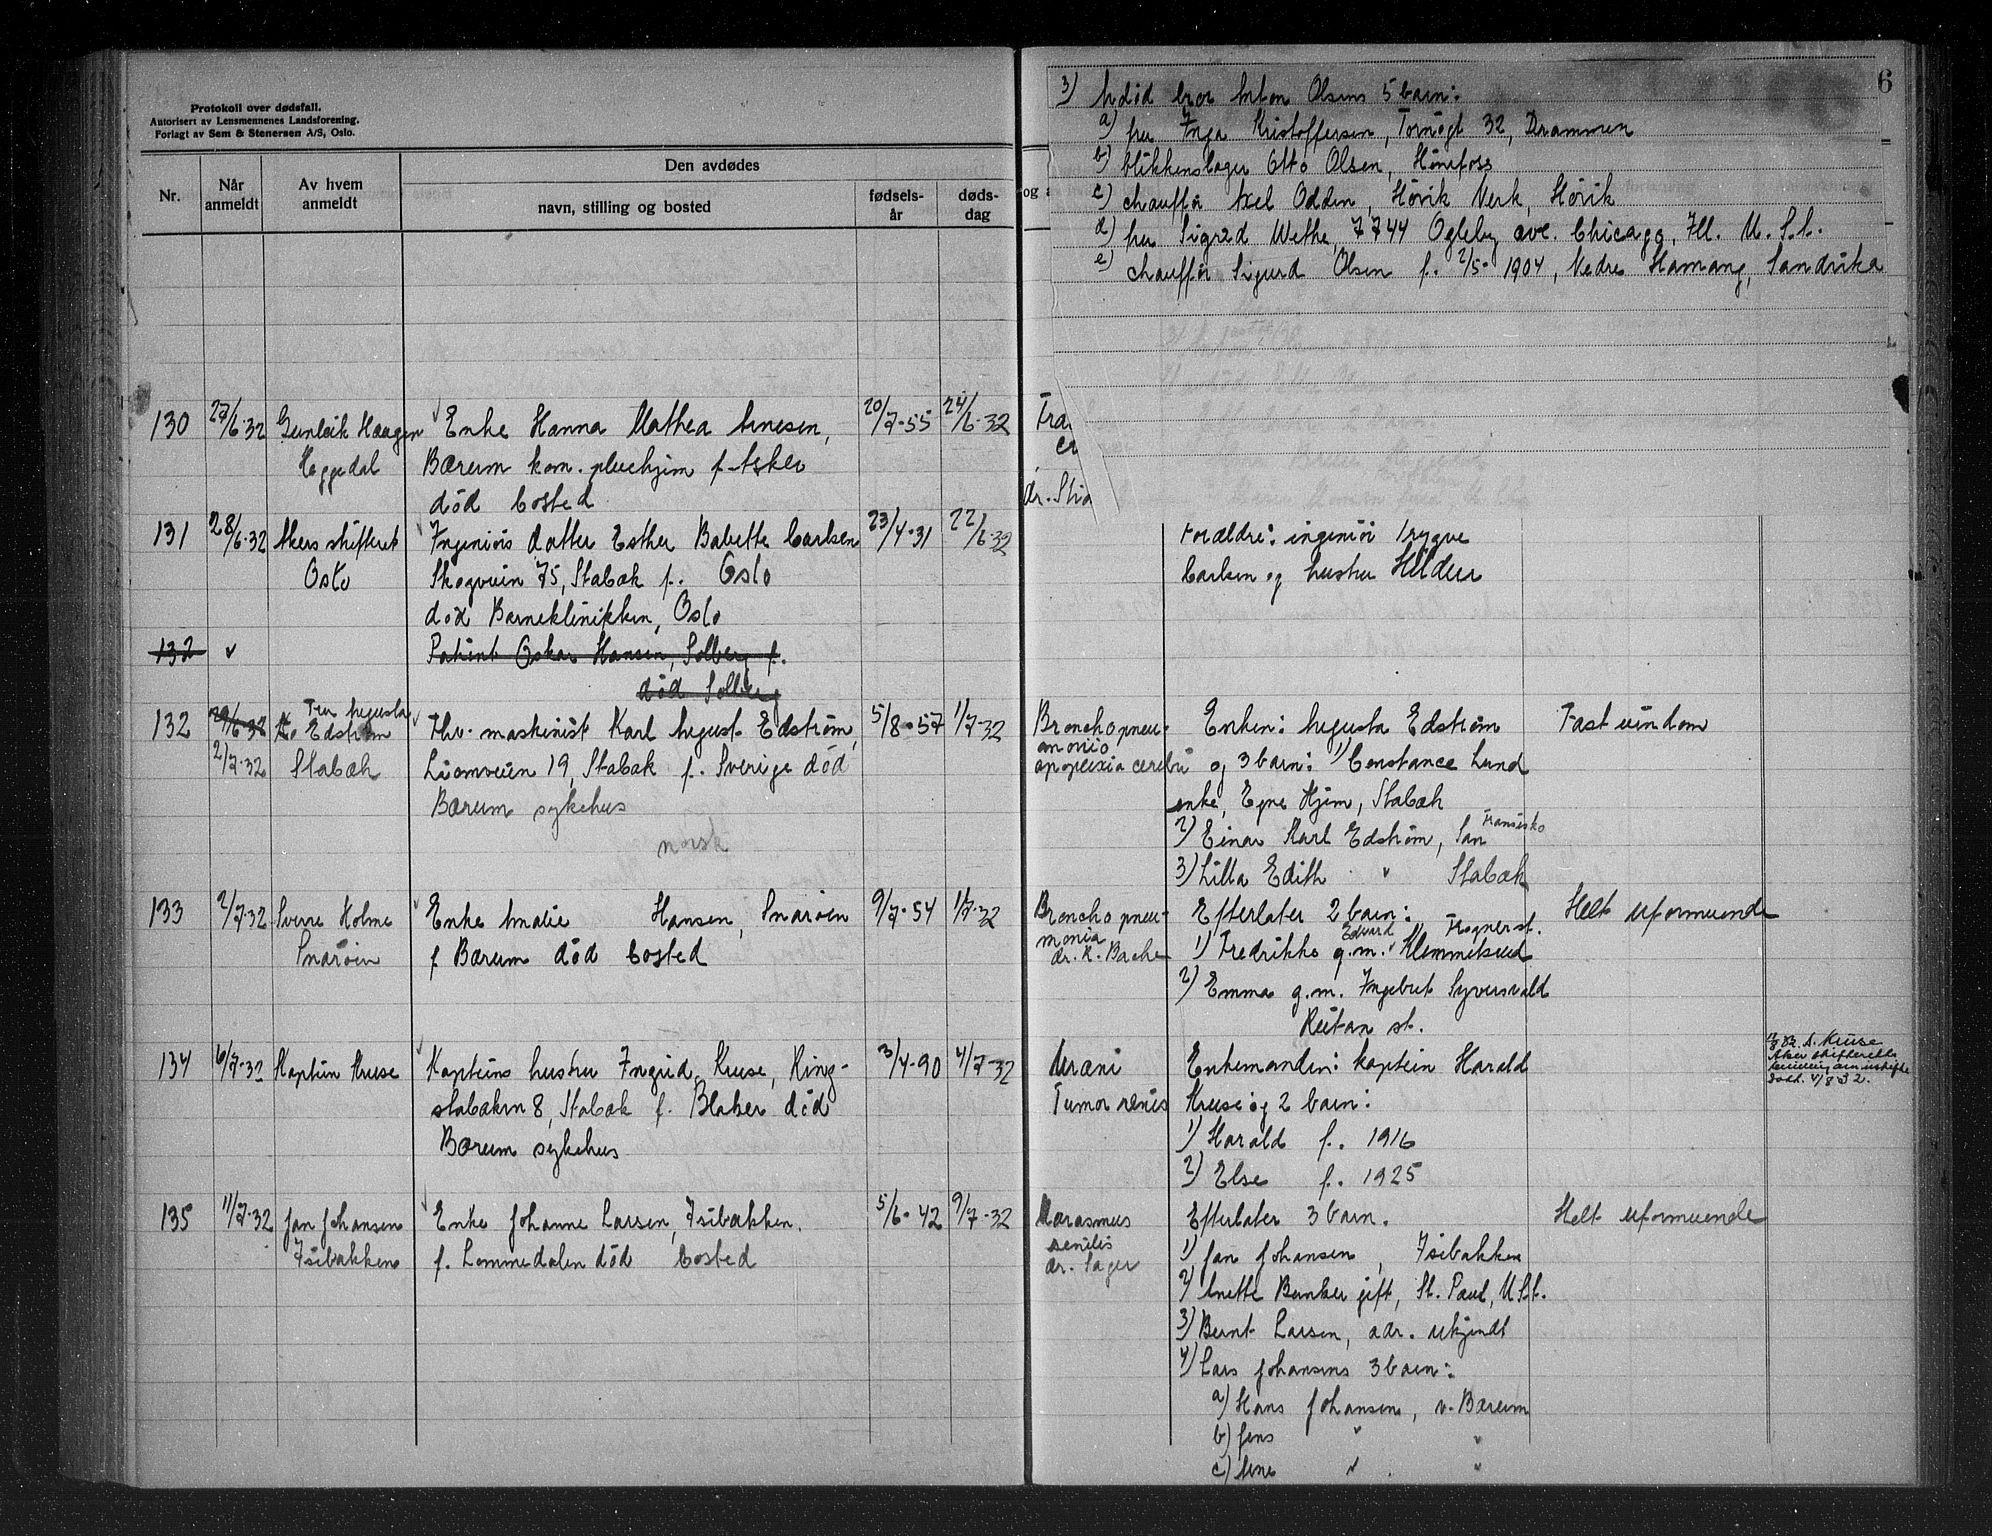 Protokoll over dødsfall.
Autorisert av Lensmennenes Landsforening.
Forlagt av Sem & Stenersen A/S, Oslo.
Nr.
Når anmeldt
Av hvem anmeldt
Den avdødes
navn, stilling og bosted
fødsels-år
døds-dag
130 27/6-32 Gunleik Haagen Enke Hanna Mathea Arnesen, 20/7-55 24/6-32
Heggedal Bærum kom. pleiehjem f. Asker
død bosted
131 28/6-32 Akers skifterett Ingeniørs datter Esther Babette Carlsen 23/4-31 22/6-32
Oslo Skogveien 75, Stabæk f. Oslo
død Barneklinikken, Oslo
132 v Patient Oskar Hansen, Solberg f.
død Solberg
132 29/6-32 Fru Augusta Edstrøm Fhv. maskinist Karl August Edstrøm, 5/8-57 1/7-32
2/7-32 Stabæk 19, Stabæk f. Sverige død
Bærum sykehus
norsk
133 2/7-32 Sverre Holme Enke Amalie Hansen, Snarøen 9/7-54 1/7-32
Snarøen f Bærum død bosted
134 6/7-32 Kaptein Kruse Kapteins hustru Ingrid Kruse, Ring- 3/4-90 4/7-32
stabækken 8, Stabæk f. Blaker død
Bærum sykehus
135 11/7-32 Jan Johansen Enke Johanne Larsen, Isibakken. 5/6-42 9/7-32
Isibakken f. Lommedalen død bosted
6
3) Avdød bror Anton Olsens 5 barn:
a) fru Inga Kristoffersen, Tornøgt 32, Drammen
b) blikkenslager Otto Olsen, Hønefoss
c) chauffør Axel Odden, Hørik Verk, Hørik
d) fru Sigrid Wethe, 7744 Ogleby ave. Chicago, Ill. U.S.A.
e) chauffør Sigurd Olsen f. 2/5-1904, Nedre Hamang, Sandvika
og a
Fra
cr
dr. Stia
Forældre: ingeniør Trygve
Carlsen og hustru Hildur
Bronchopneu- Enken: Augusta Edstrøm Fast eiendom
monia
apoplexia cerebri og 3 barn: 1) Constance Lund
enke, Egne Hjem, Stabæk
2) Einar Karl Edstrøm, San Fransisko
3) Lilla Edith " Stabæk
Bronchopneu- Efterlater 2 barn: Helt uformuende
monia 1) Fredrikke g.m. Edvard Klemmetsrud Rognerst.
dr. K. Bache
2) Emma g.m. Ingebret Syversvold
Rutan st.
Uræmi Enkemanden: kaptein Harald
Tumor renis Kruse og 2 barn:
1) Harald f. 1916
2) Else f. 1925
Kruse
Aker skifterett
4/8 32.
Marasmus Efterlater 3 barn. Helt uformuende
senilis 1) Jan Johansen, Isibakken
dr. Sager
2) Anette Bunker gift, St. Paul, U.S.A.
3) Bernt Larsen, adr. ukjendt
4) Lars Johansens 3 barn:
a) Hans Johansen, v. Bærum
b) Jens " "
c) Arne " "